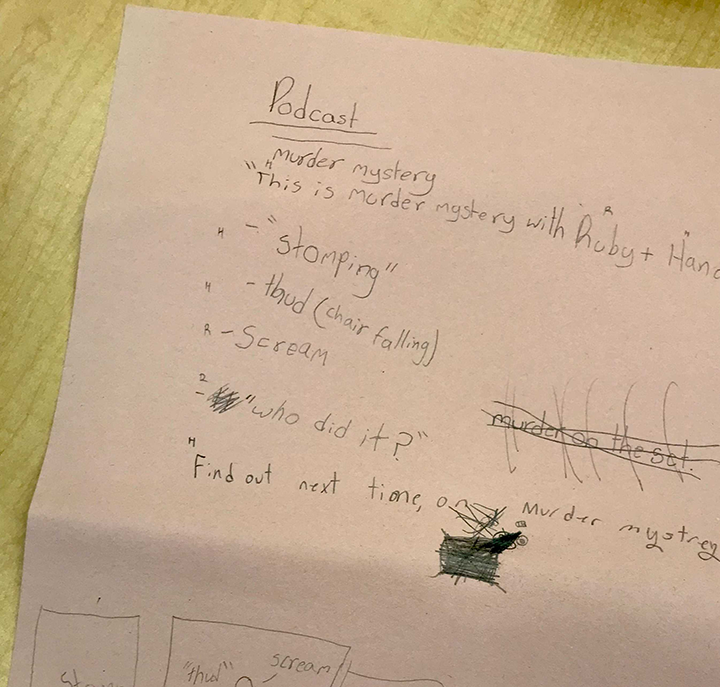 Podcast
murder mystery
H R H
"This is murder mystery with Ruby + Hanc
H - "stomping"
H - thud (chair falling)
R - Scream
2 - "who did it?"
murder on the set.
H
Find out next time, on Murder mystrey
"thud" scream